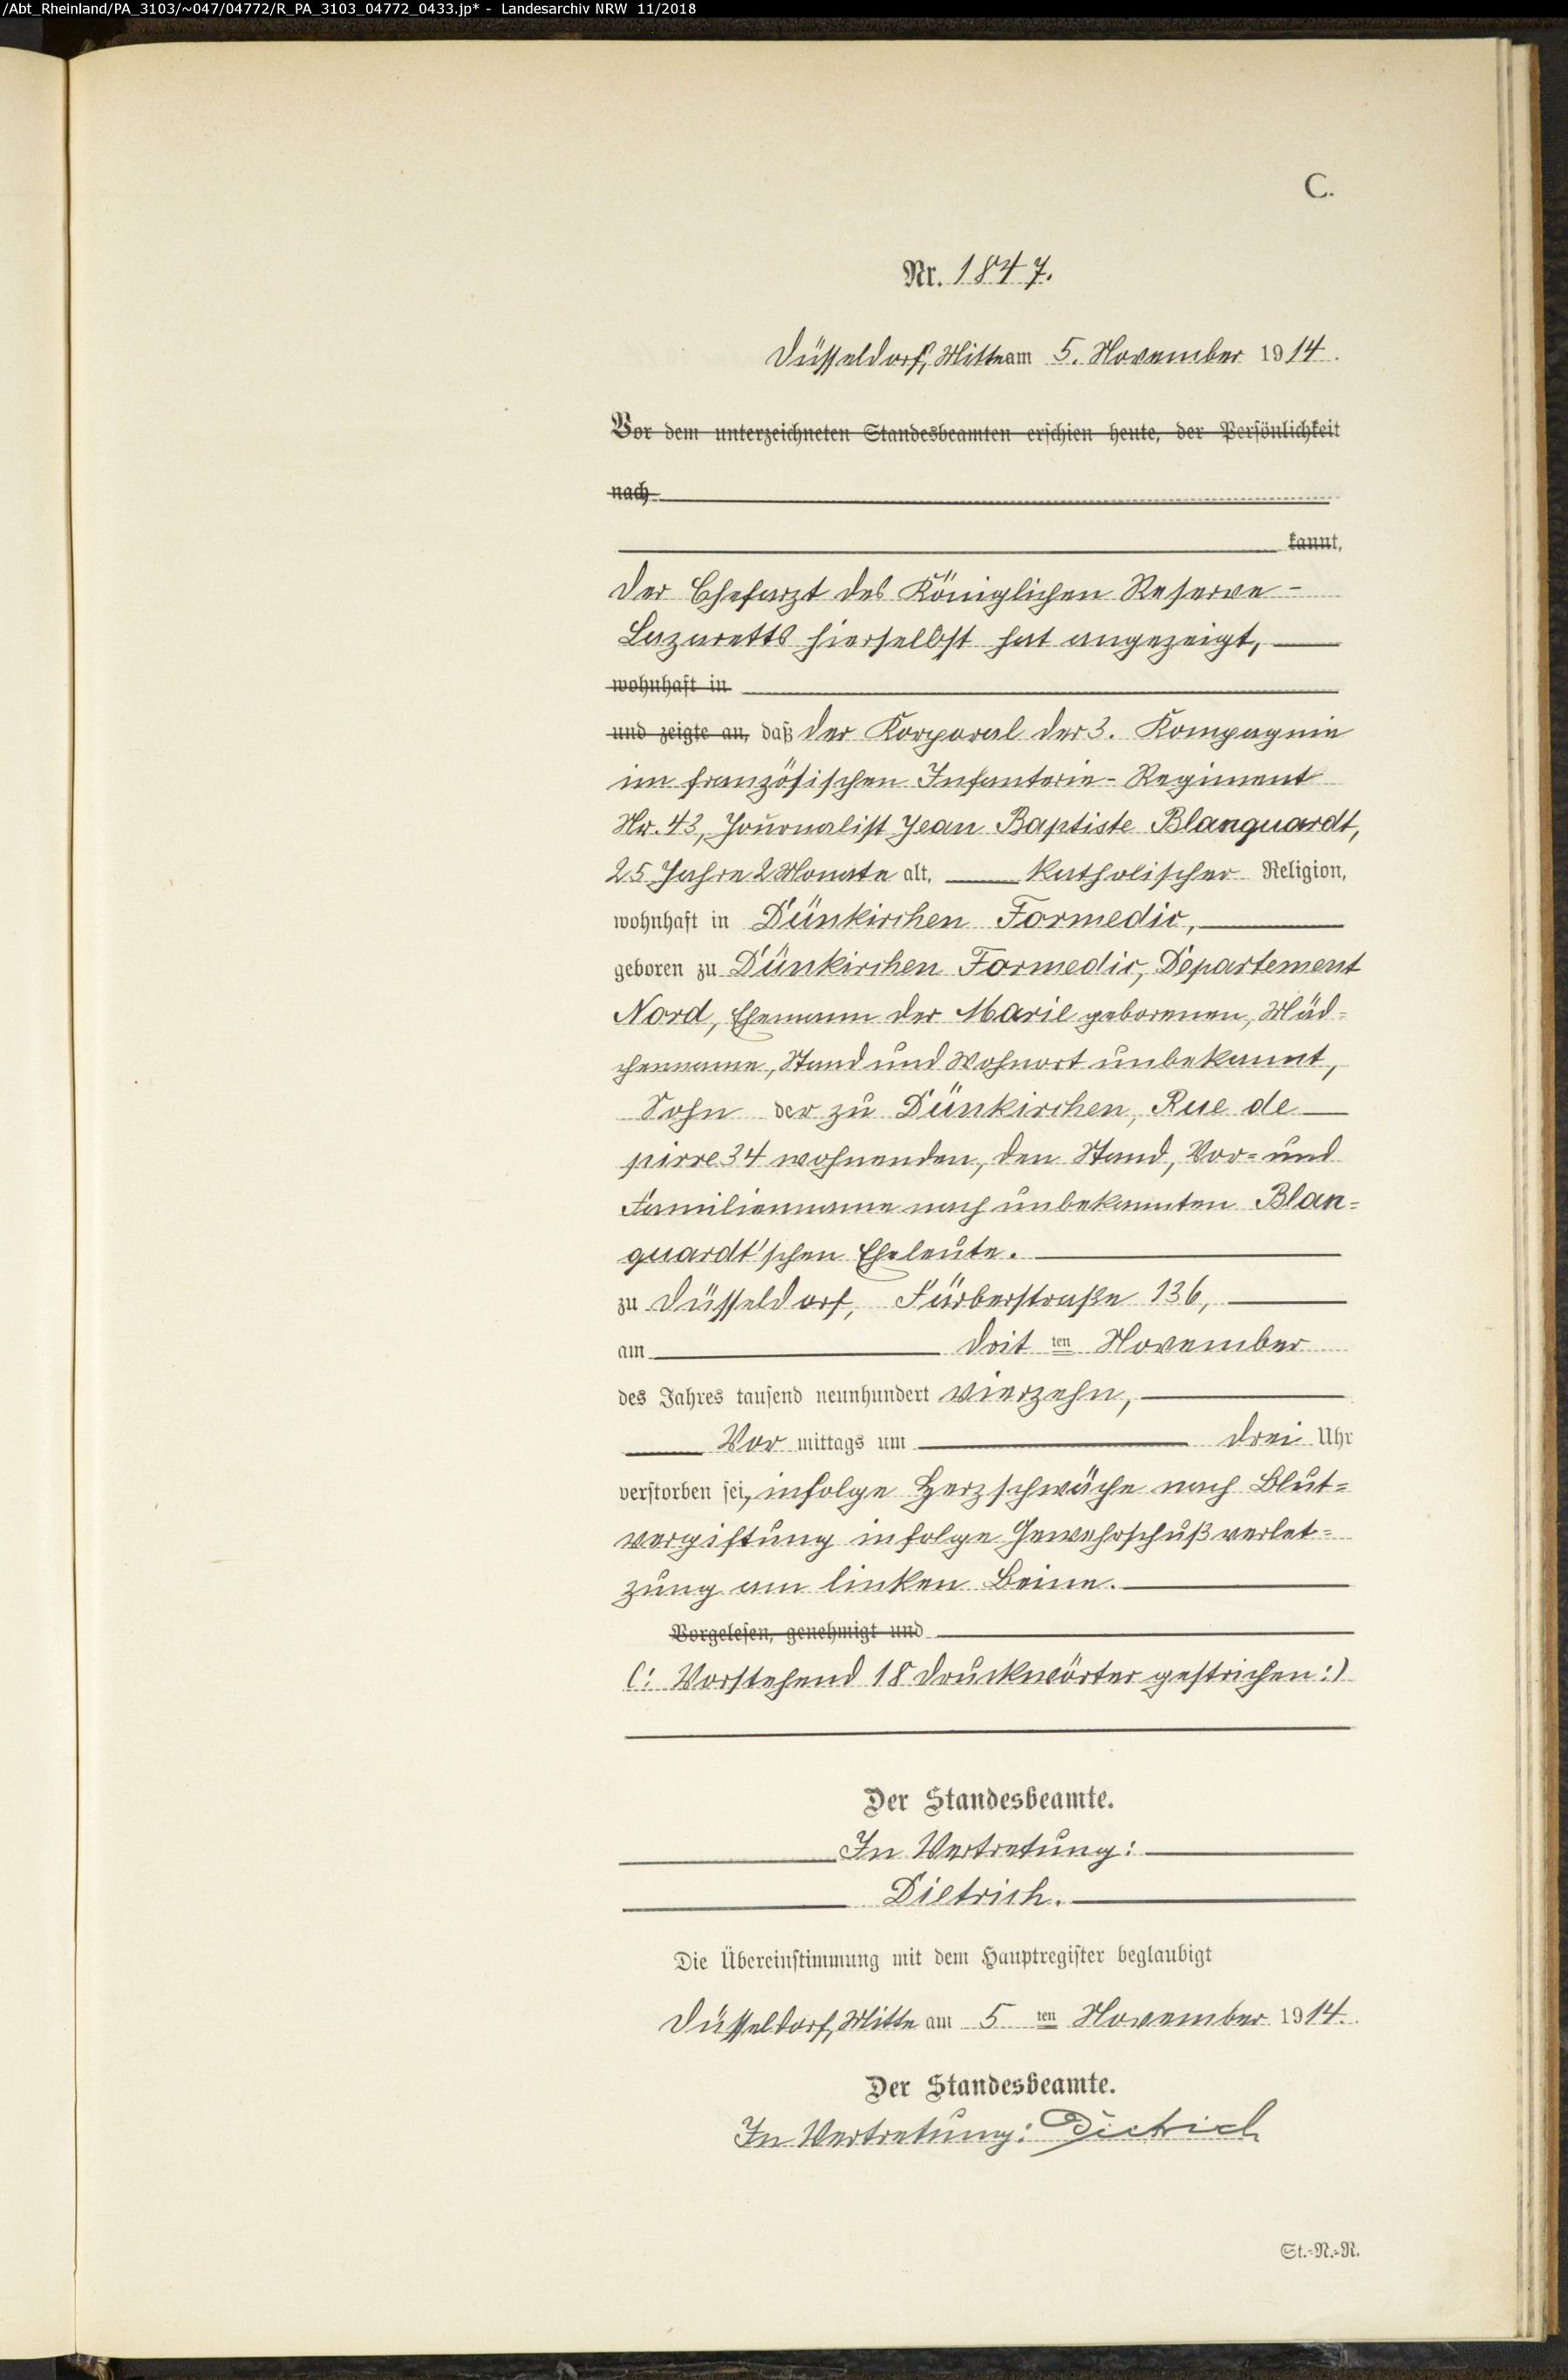 /Abt_Rheinland/PA_3103/~047/04772/R_PA_3103_04772_0433.jp* - Landesarchiv NRW 11/2018
C.
Nr. 1847.
Düsseldorf, Mitte am 5. November 1914.
Vor dem unterzeichneten Standesbeamten erschien heute, der Persönlichkeit
nach
kannt,
Der Chefarzt des Königlichen Reserve-
Lazaretts hierselbst hat angezeigt,
wohnhaft in
und zeigte an, daß der Korporal der 3. Kompagnie
im französischen Infanterie-Regiment
Nr. 43, Journalist Jean Baptiste Blanquardt,
25 Jahre 2 Monate alt, katholischer Religion,
wohnhaft in Dünkirchen Formedic,
geboren zu Dünkirchen Formedic, Departement
Nord, Ehemann der Marie geborenen, Mäd-
chenname, Stand und Wohnort unbekannt,
Sohn der zu Dünkirchen, Rue de
pirre 34 wohnenden, den Stand, Vor- und
Familienname nach unbekannten Blan-
quardt'schen Eheleute.
zu Düsseldorf, Färberstraße 136,
am drit ten November
des Jahres tausend neunhundert vierzehn,
Vor mittags um drei Uhr
verstorben sei, infolge Herzschwäche nach Blut-
vergiftung infolge Gewehrschußverlet-
zung am linken Beine.
Vorgelesen, genehmigt und
(: Vorstehend 18 Druckwörter gestrichen :)
Der Standesbeamte.
In Vertretung:
Dietrich.
Die Übereinstimmung mit dem Hauptregister beglaubigt
Düsseldorf, Mitte am 5 ten November 1914.
Der Standesbeamte.
In Vertretung: Dietrich
St.-N.-R.